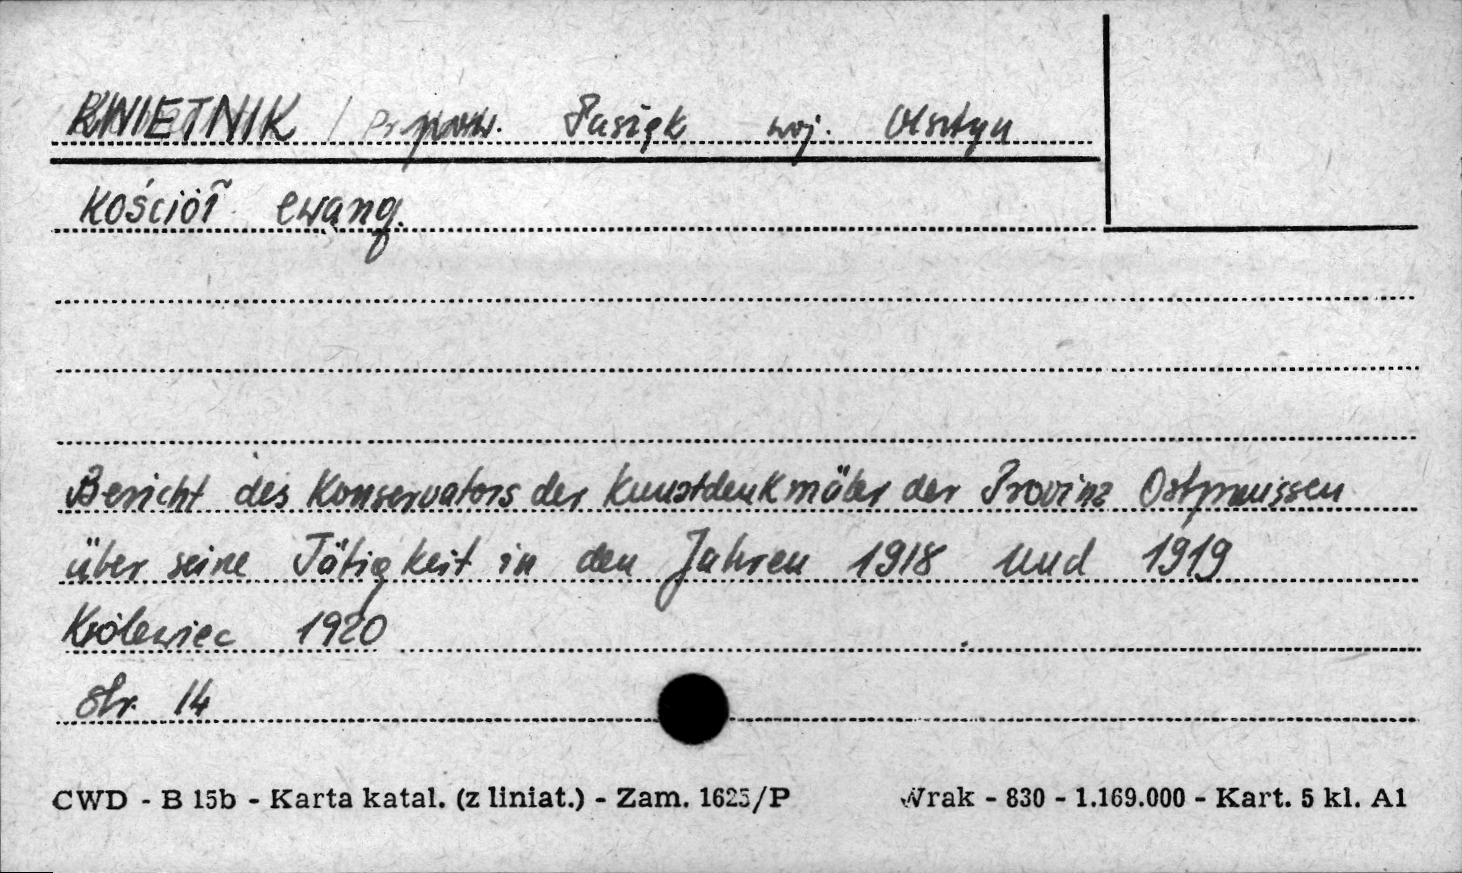 KWIETNIK / pow. Pasłęk woj. Olsztyn
Kościół ewang.
Bericht des Konservators der Kunstdenkmäler der Provinz Ostpreussen
über seine Tätigkeit in den Jahren 1918 und 1919
Królewiec 1920
Str. 14
CWD - B 15b - Karta katal. (z liniat.) - Zam. 1625/P Wrak - 830 - 1.169.000 - Kart. 5 kl. A1